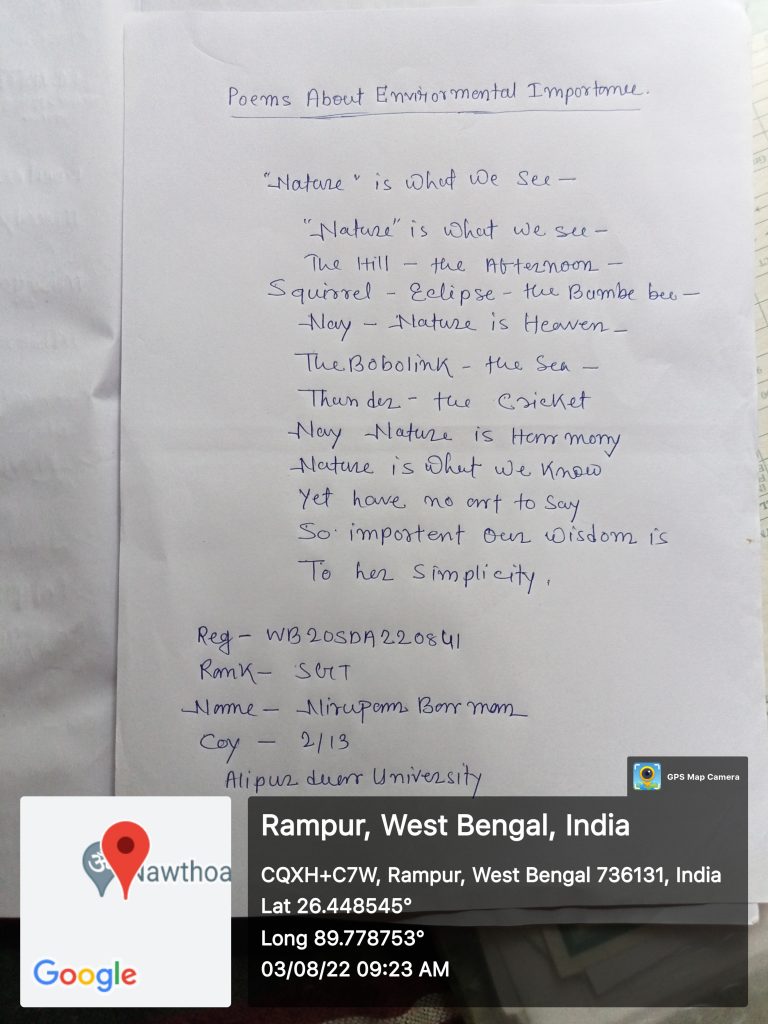 Poems About Envirormental Importance.
"Nature" is what we see –
"Nature" is what we see –
The Hill – the Afternoon –
Squirrel – Eclipse – the Bumbe bee –
Nay – Nature is Heaven –
The Bobolink – the Sea –
Thunder – the Cricket
Nay Nature is Harmmony
Nature is what we Know
Yet have no art to say
So importent our wisdom is
To her simplicity.
Reg – WB20SDA220841
Rank – SGT
Name – Nirupam Barman
Coy – 2/13
Alipur duar University
GPS Map Camera
Nawthoa
Google
Rampur, West Bengal, India
CQXH+C7W, Rampur, West Bengal 736131, India
Lat 26.448545°
Long 89.778753°
03/08/22 09:23 AM